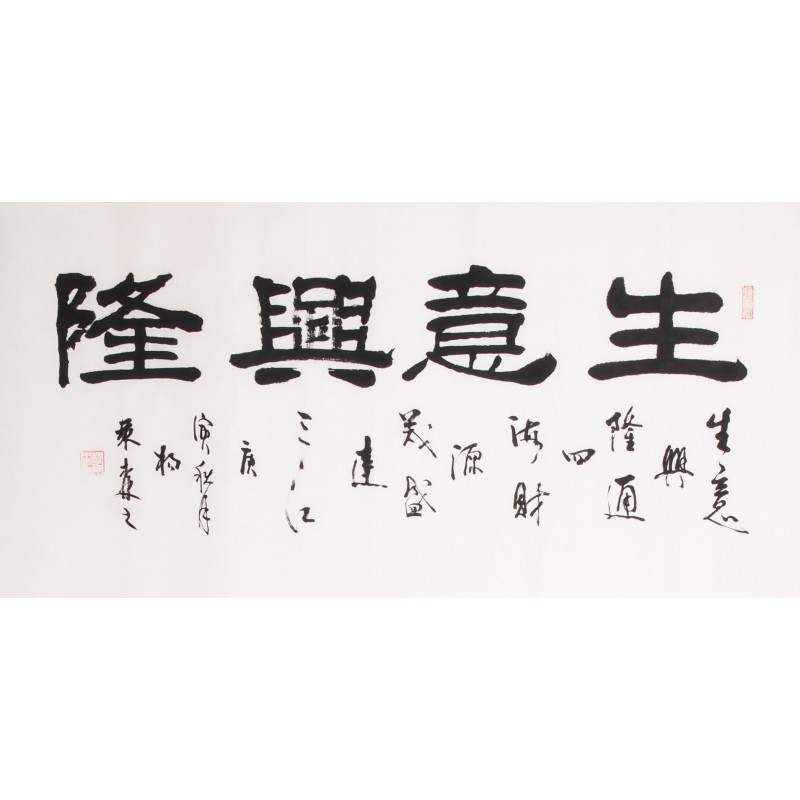 生意興隆
生意
興
隆通
四
海财
源
茂盛
達
三江
庚
寅秋月
楊